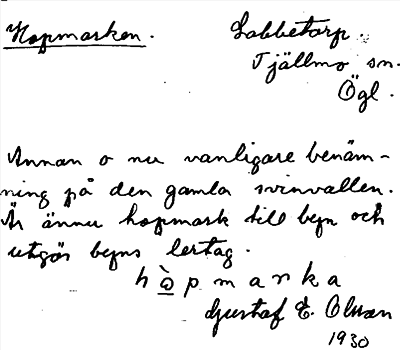 Hopmarken. Lobbetorp.
Tjällmo sn.
Ögl.
Annan o nu vanligare benäm-
ning på den gamla svinvallen.
Är ännu hopmark till byn och
utgör byns lertag.
hòpmarka
Gustaf E. Olsson
1930